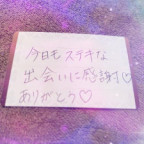 今日もステキな
出会いに感謝♡
ありがとう♡